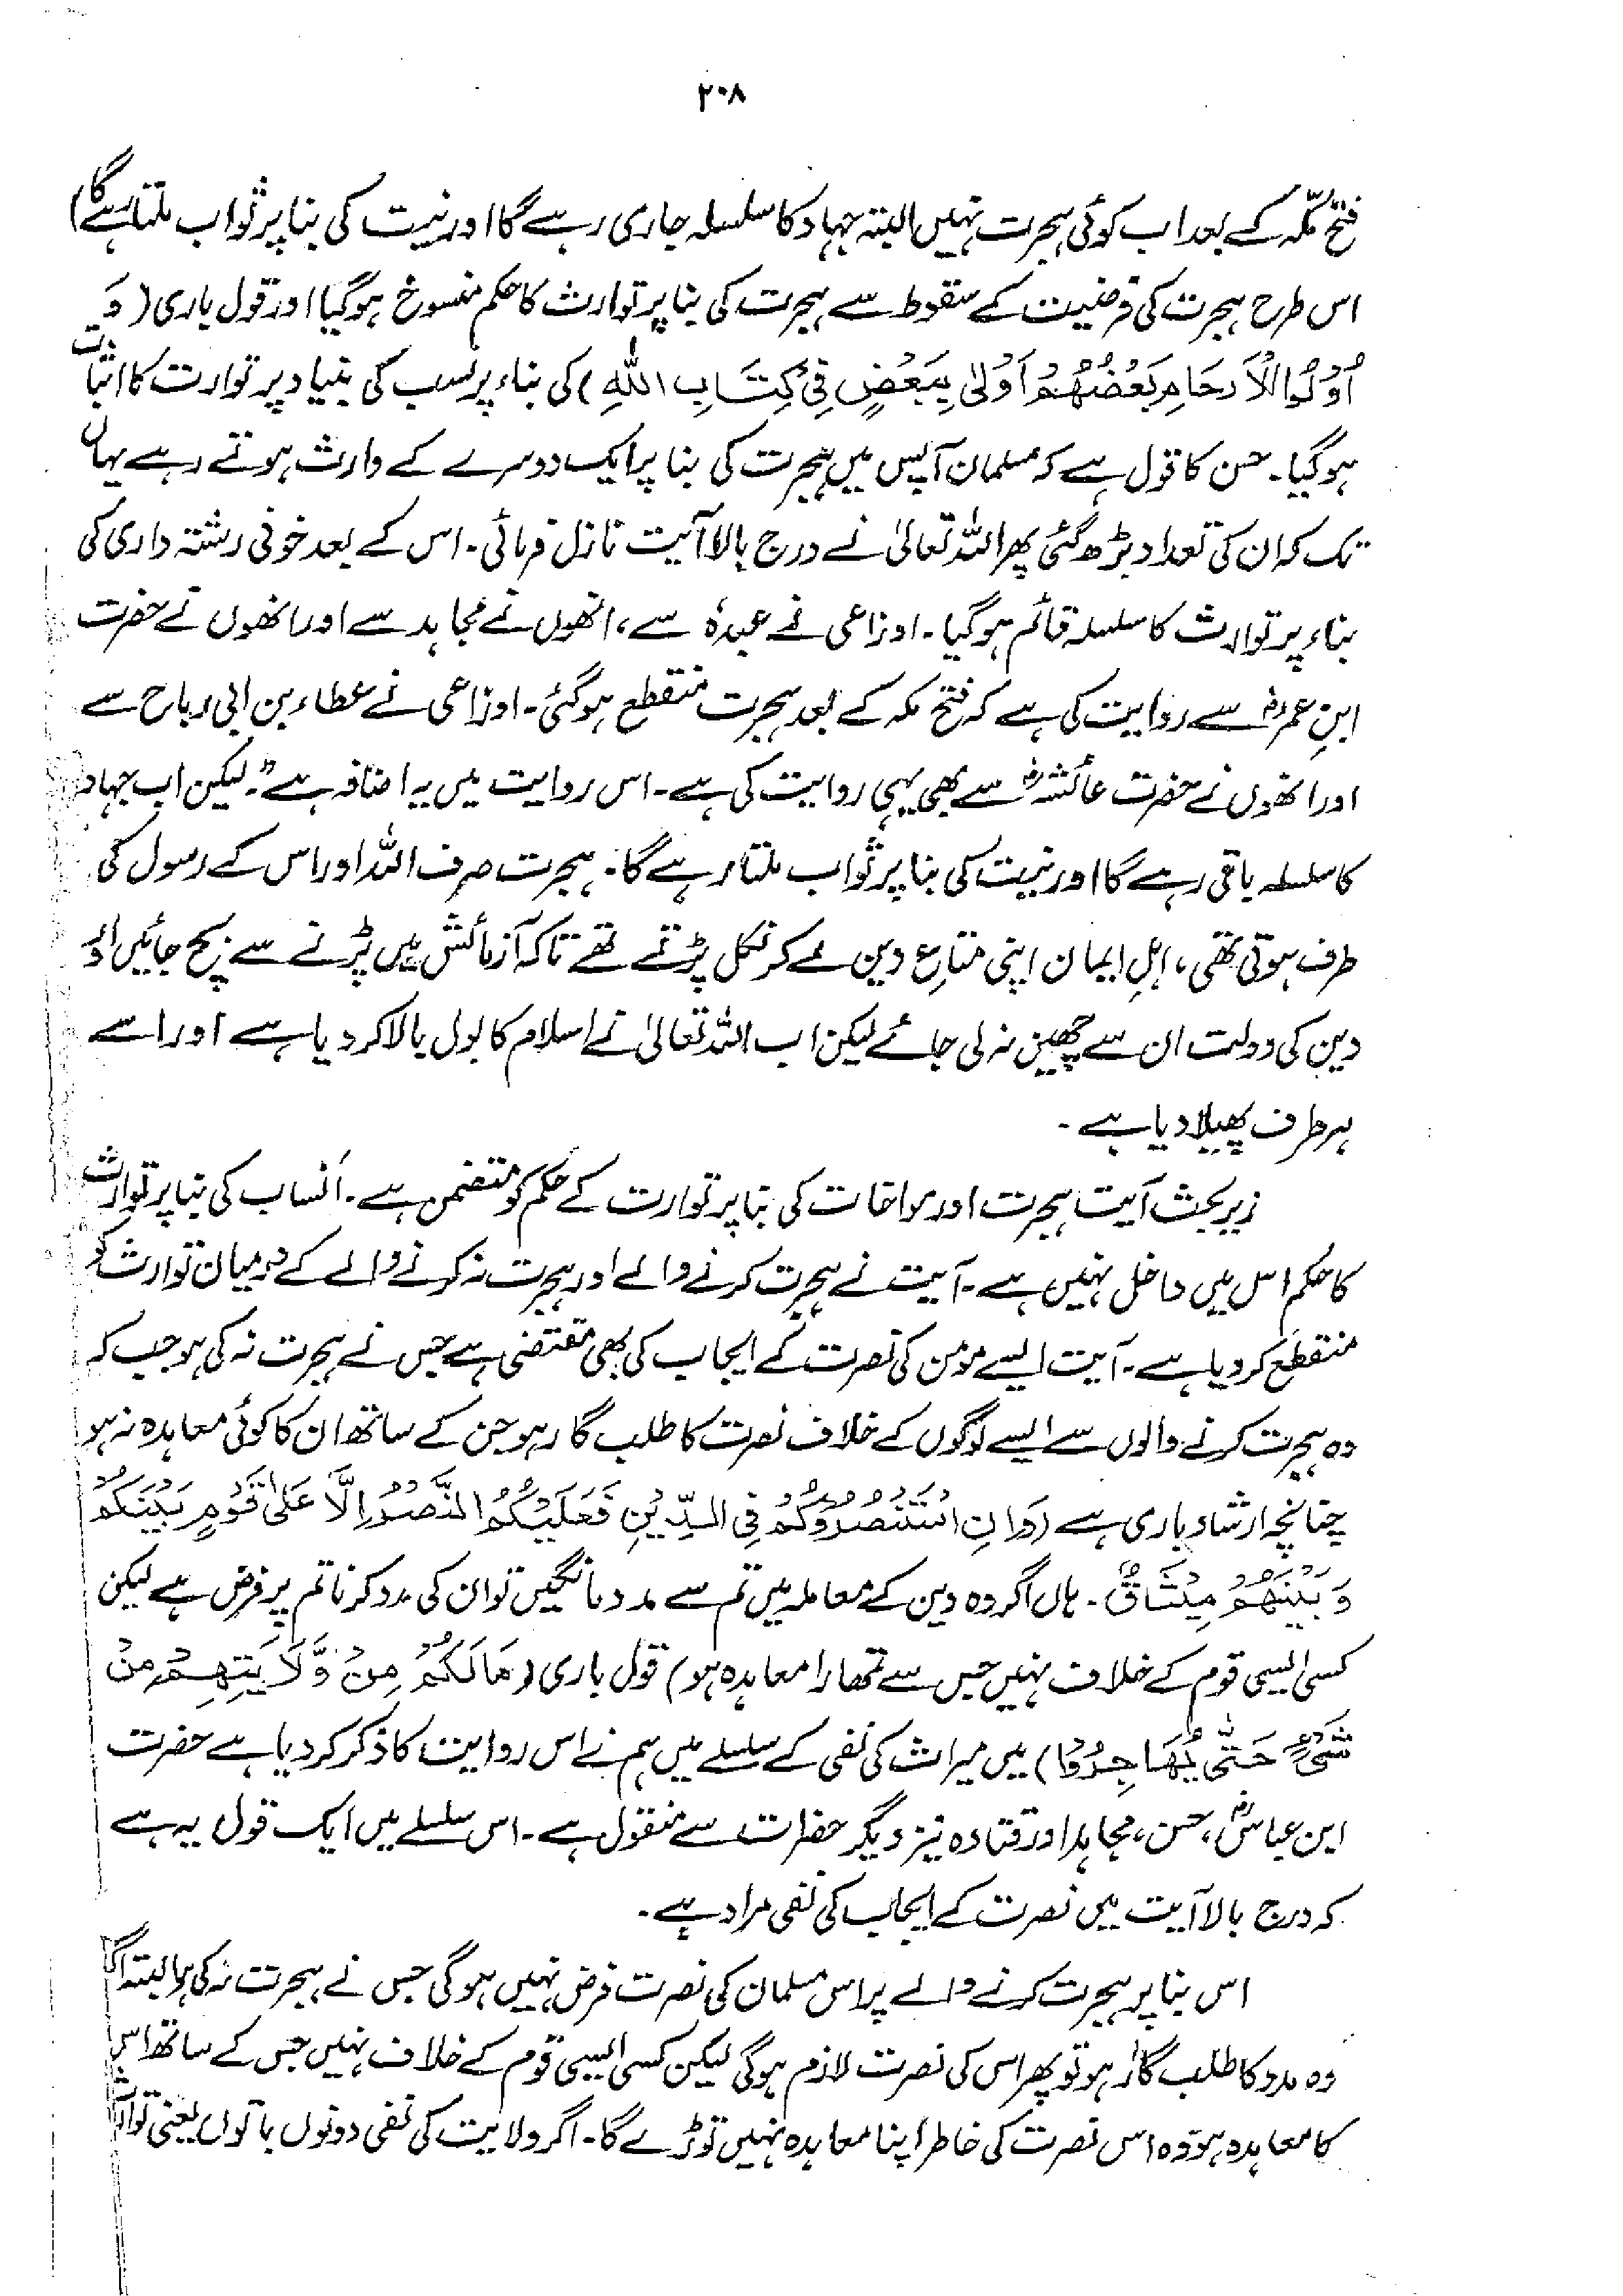 ۲۰۸
فتح مکہ کے بعد اب کوئی ہجرت نہیں البتہ جہاد کا سلسلہ جاری رہے گا اور نیت کی بنا پر ثواب ملتا رہے گا)
اس طرح ہجرت کی فرضیت کے سقوط سے ہجرت کی بنا پر توارث کا حکم منسوخ ہو گیا اور قول باری (وَ
اُولُوا الْاَرْحَامِ بَعْضُهُمْ اَوْلٰى بِبَعْضٍ فِیْ كِتَابِ اللّٰهِ) کی بناء پر نسب کی بنیاد پر توارث کا اثبات
ہو گیا۔ حسن کا قول ہے کہ مسلمان آپس میں ہجرت کی بنا پر ایک دوسرے کے وارث ہوتے رہے یہاں
تک کہ ان کی تعداد بڑھ گئی پھر اللہ تعالیٰ نے درج بالا آیت نازل فرمائی۔ اس کے بعد خونی رشتہ داری کی
بناء پر توارث کا سلسلہ قائم ہو گیا۔ اوزاعی نے عبدہ سے، انھوں نے مجاہد سے اور انھوں نے حضرت
ابنِ عمرؓ سے روایت کی ہے کہ فتح مکہ کے بعد ہجرت منقطع ہو گئی۔ اوزاعی نے عطاء بن ابی رباح سے
اور انھوں نے حضرت عائشہؓ سے بھی یہی روایت کی ہے۔ اس روایت میں یہ اضافہ ہے "لیکن اب جہاد
کا سلسلہ باقی رہے گا اور نیت کی بنا پر ثواب ملتا رہے گا۔ ہجرت صرف اللہ اور اس کے رسول کی
طرف ہوتی تھی، اہلِ ایمان اپنی متاعِ دین لے کر نکل پڑتے تھے تاکہ آزمائش میں پڑنے سے بچ جائیں اور
دین کی دولت ان سے چھین نہ لی جائے لیکن اب اللہ تعالیٰ نے اسلام کا بول بالا کر دیا ہے اور اسے
ہر طرف پھیلا دیا ہے۔
زیر بحث آیت ہجرت اور مواخات کی بنا پر توارث کے حکم کو متضمن ہے۔ اَنساب کی بنا پر توارث
کا حکم اس میں داخل نہیں ہے۔ آیت نے ہجرت کرنے والے اور ہجرت نہ کرنے والے کے درمیان توارث کو
منقطع کر دیا ہے۔ آیت ایسے مؤمن کی نصرت کے ایجاب کی بھی مقتضی ہے جس نے ہجرت نہ کی ہو جب کہ
وہ ہجرت کرنے والوں سے ایسے لوگوں کے خلاف نصرت کا طلب گار ہو جن کے ساتھ ان کا کوئی معاہدہ نہ ہو
چنانچہ ارشاد باری ہے (وَاِنِ اسْتَنْصَرُوْكُمْ فِی الدِّیْنِ فَعَلَیْكُمُ النَّصْرُ اِلَّا عَلٰى قَوْمٍ بَیْنَكُمْ
وَ بَیْنَهُمْ مِیْثَاقٌ۔ ہاں اگر وہ دین کے معاملہ میں تم سے مدد مانگیں تو ان کی مدد کرنا تم پر فرض ہے لیکن
کسی ایسی قوم کے خلاف نہیں جس سے تمھارا معاہدہ ہو) قول باری (مَا لَكُمْ مِنْ وَّلَایَتِهِمْ مِنْ
شَیْءٍ حَتّٰى یُهَاجِرُوْا) میں میراث کی نفی کے سلسلے میں ہم نے اس روایت کا ذکر کر دیا ہے حضرت
ابن عباسؓ، حسن، مجاہد اور قتادہ نیز دیگر حضرات سے منقول ہے۔ اس سلسلے میں ایک قول یہ ہے
کہ درج بالا آیت میں نصرت کے ایجاب کی نفی مراد ہے۔
اس بنا پر ہجرت کرنے والے پر اس مسلمان کی نصرت فرض نہیں ہو گی جس نے ہجرت نہ کی ہو البتہ اگر
وہ مدد کا طلب گار ہو تو پھر اس کی نصرت لازم ہوگی لیکن کسی ایسی قوم کے خلاف نہیں جس کے ساتھ اس
کا معاہدہ ہو وہ اس نصرت کی خاطر اپنا معاہدہ نہیں توڑے گا۔ اگر ولایت کی نفی دونوں باتوں یعنی توارث